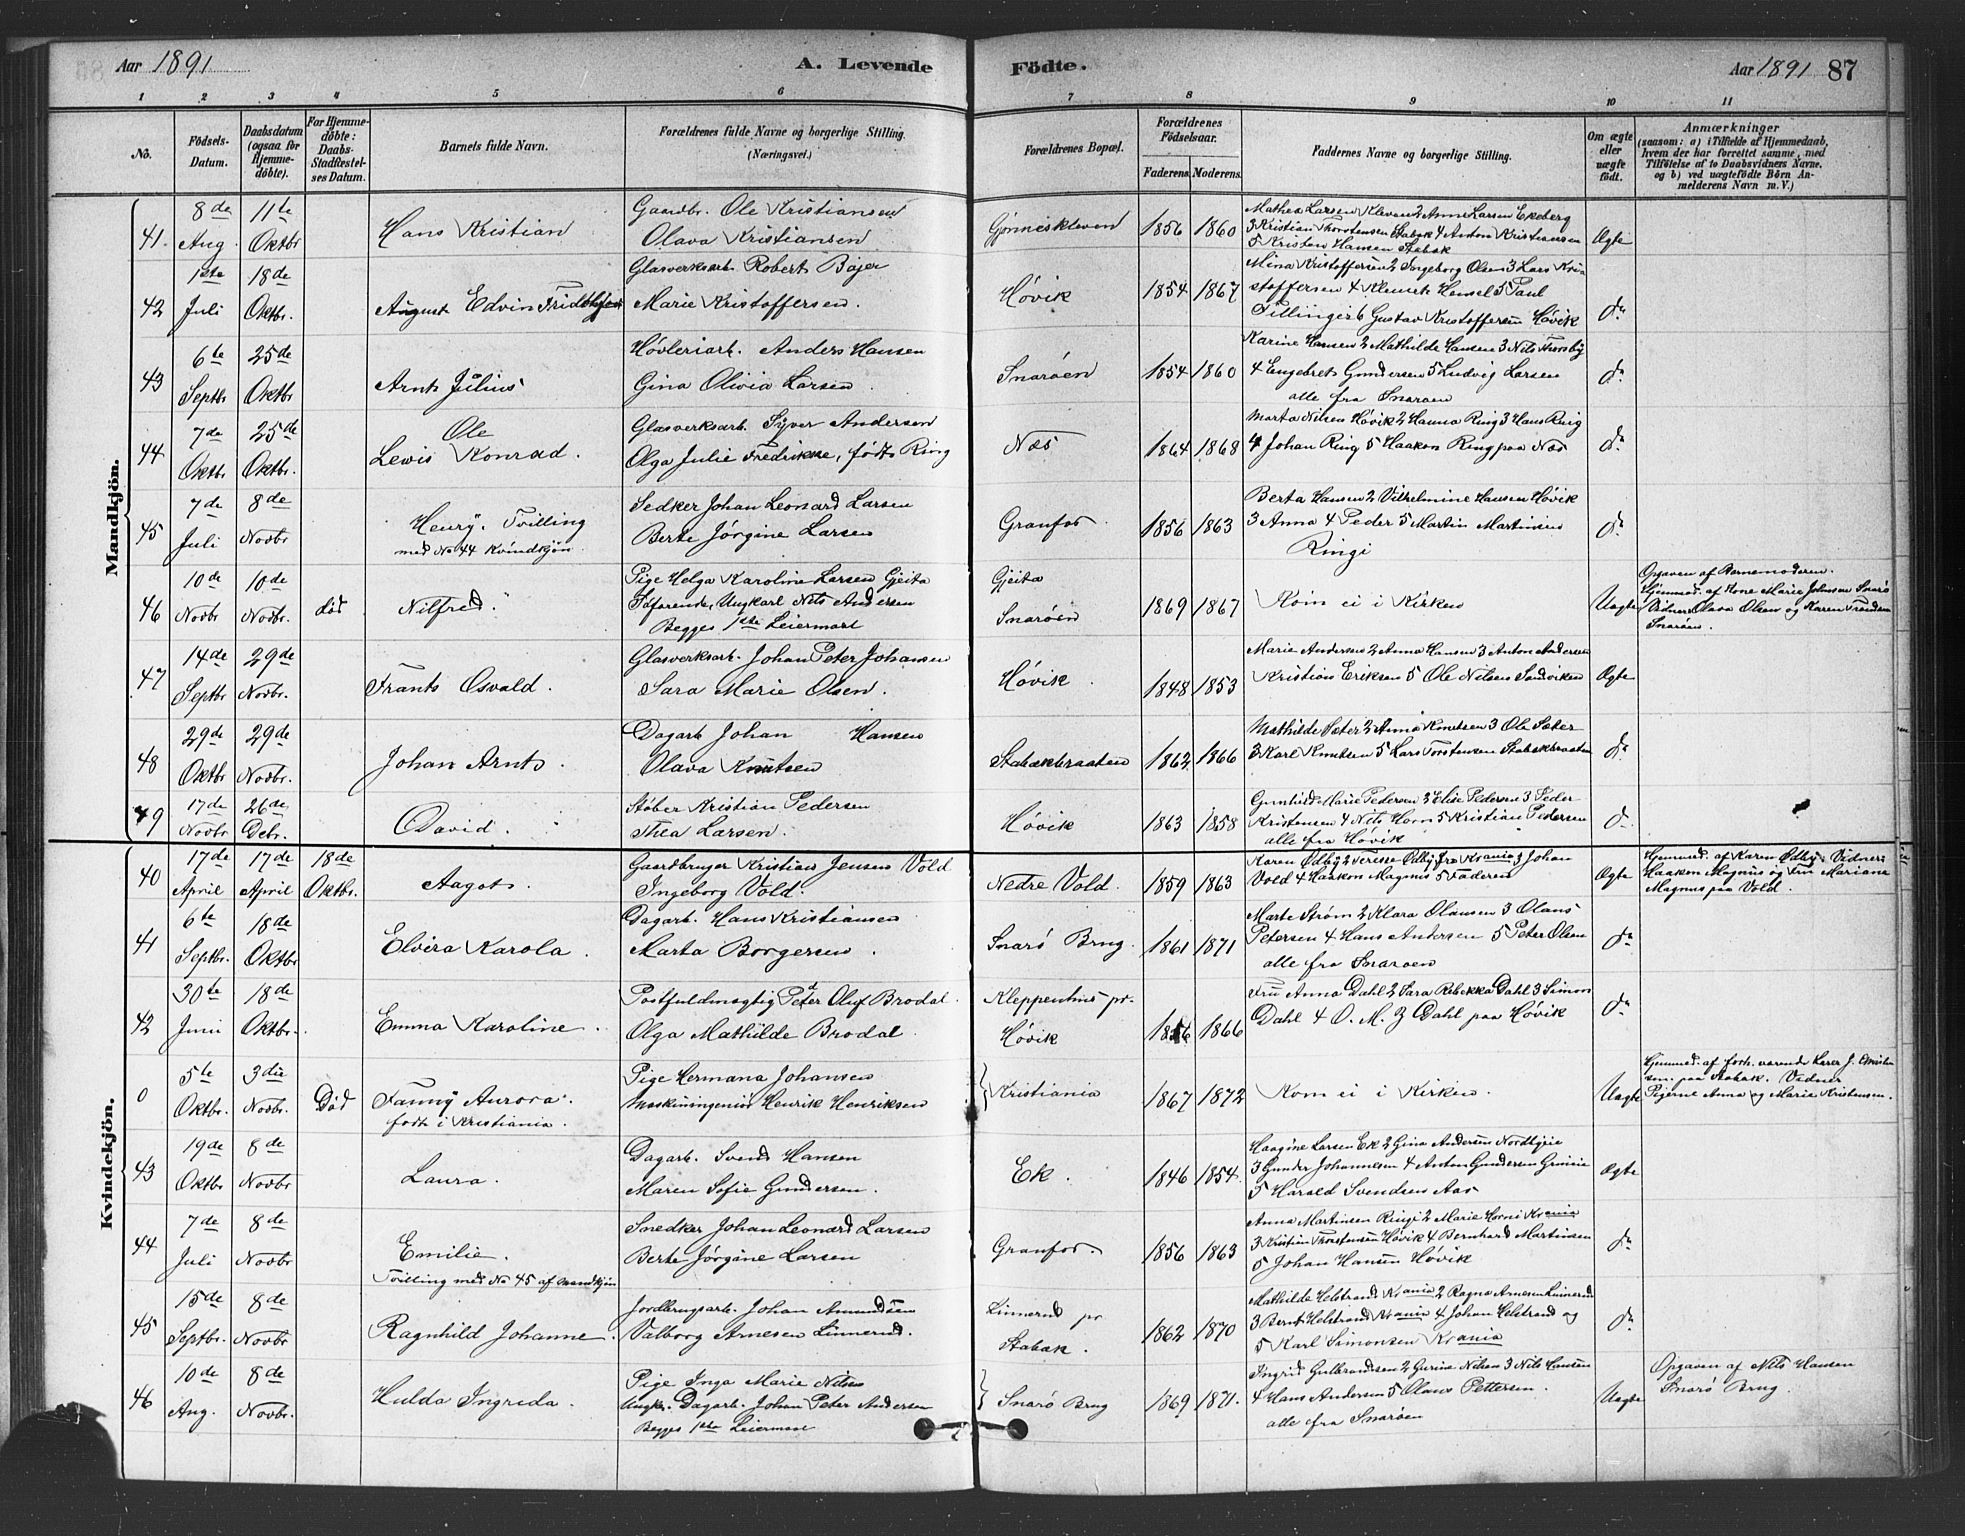 Aar 1891
A. Levende Födte.
Aar 1891 87
1 2 3 4 5 6 7 8 9 10 11
No.
Födsels-Datum.
Daabsdatum (ogsaa for Hjemme-döbte).
For Hjemme-döbte: Daabs-Stadfæstel-ses Datum.
Barnets fulde Navn.
Forældrenes fulde Navne og borgerlige Stilling. (Næringsvei.)
Forældrenes Bopæl.
Forældrenes Födselsaar.
Faderens Moderens
Faddernes Navne og borgerlige Stilling.
Om ægte eller uægte födt.
Anmærkninger
(saasom: a) i Tilfælde af Hjemmedaab, hvem der har forrettet samme, med Tilföielse af to Daabsvidners Navne, og b) ved uægtefödte Börn An-melderens Navn m. V.)
Mandkjön.
41. 8de Aug. 11te Oktbr Hans Kristian
Gaardbr. Ole Kristiansen
Olava Kristiansen
1856 1860
Mathea Larsen Kleven 2 Anne Larsen Ekeberg
3 Kristian Thorstensen Stabæk 4 Anton Kristiansen
5 Kristen Hansen Stabæk
Ægte
42 1ste Juli 18de Oktbr. August Edvin
Glasverksarb. Robert Bajer
Marie Kristoffersen.
Høvik 1854 1867
Mina Kristoffersen 2 Ingeborg Olsen 3 Lars Kri
stoffersen 4 Klemet Hensel 5 Paul
Tillinger 6 Gustav Kristoffersen Høvik
do
43 6te Septbr 25de Oktbr Arnt Julius
Høvleriarb. Anders Hansen
Gina Olivia Larsen.
Snarøen 1854 1860
Karine Hansen 2 Mathilde Hansen 3 Nils Thorsby
4 Engebret Gundersen 5 Ludvig Larsen
alle fra Snarøen
do
44 7de Oktbr 25de Oktbr. Ole
Lewis Konrad.
Glasverksarb. Syver Andersen
Olga Julie Fredrikke, født Ring
Næs 1864 1868
Marta Nilsen Høvik 2 Hanna Ring 3 Hans Ring
4 Johan Ring 5 Haakon Ring paa Næs
do
45 7de Juli 8de Novbr Henry. Tvilling
med No 44 Kvindkjøn.
Sedker Johan Leonard Larsen
Berte Jørgine Larsen
Granfos. 1856 1863
Berta Hansen 2 Vilhelmine Hansen Høvik
3 Anna 4 Peder 5 Martin Martinsen
Ringi
do
46 10de Novbr 10de Novbr. død Nilfred.
Pige Helga Karoline Larsen Gjeita
Søfarende, Ungkarl Nils Andersen
Begges 1ste Leiermaal
Gjeita
Snarøen 1869 1867
Kom ei i Kirken
Uægte
Opgaven af Barnemoderen.
Hjemmed. af Kone Marie Johnsen Snarø
Vidner Olava Olsen og Karen
Snarøen.
47 14de Septbr 29de Novbr. Frants Osvald.
Glasverksarb. Johan Peter Johansen
Sara Marie Olsen.
Høvik. 1848 1853
Marie Andersen 2 Anna Hansen 3 Anton Andersen
Kristian Eriksen 5 Ole Nilsen Sandviken
Ægte
48 29de Oktbr 29de Novbr. Johan Arnt.
Dagarb Johan Hansen
Olava Knutsen
Stabækbraaten 1862 1866
Mathilde Sæter 2 Anna Knutsen 3 Ole Sæter
3 Karl Knutsen 5 Lars Torstensen Stabækbraaten
do
49 17de Novbr 26de Debr. David.
Støber Kristian Pedersen
Thea Larsen.
Høvik 1863 1858
Gunhild Marie Pedersen 2 Elise Pedersen 3 Peder
Kristensen 4 Nils Horn 5 Kristian Pedersen
alle fra Høvik
do
Kvindekjön.
40 17de April 17de April 18de Oktbr. Aagot.
Gaardbruger Kristian Jensen Vold
Ingeborg Vold.
Nedre Vold. 1859 1863
Karen Ødby 2 Terese Ødby fra Krania 3 Johan
Vold 4 Haakon Magnus 5 Faderen
Ægte
Hjemmed. af Karen Ødby. Vidner:
Haakon Magnus og Fru Mariane
Magnus paa Vold.
41 6te Septbr. 18de Oktbr Elvira Karola.
Dagarb. Hans Kristiansen
Marta Borgersen.
Snarø Brug. 1861 1871
Marte Strøm 2 Klara Olausen 3 Olaus
Petersen 4 Hans Andersen 5 Peter Olsen
alle fra Snarøen
do
42 30te Juni 18de Oktbr. Emma Karoline.
Postfuldmægtig Peter Oluf Brodal.
Olga Mathilde Brodal.
Kleppenhus pr.
Høvik 1866
Fru Anna Dahl 2 Sara Rebekka Dahl 3 Simon
Dahl 4 O. M. Z Dahl paa Høvik
do
0 5te Oktbr. 3die Novbr. Død Fanny Aurora.
født i Kristiania.
Pige Hermana Johansen
Maskiningeniør Henrik Henriksen
Kristiania 1867 1872
Kom ei i Kirken.
Uægte
Hjemmed. af forh. værende Lærer J. Christen
sen paa Stabæk. Vidner
Pigerne Anna og Maria Kristensen.
43 19de Oktbr 8de Novbr Laura.
Dagarb. Svend Hansen
Maren Sofie Gundersen.
Ek. 1846 1854.
Haagine Larsen Ek 2 Gina Andersen
3 Gunder Johannesen 4 Anton Gundersen Grinie
5 Harald Svendsen Aas
Ægte
44 7de Juli 8de Novbr Emilie.
Tvilling med No 45 af Mandkjøn
Snedker Johan Leonard Larsen
Berte Jørgine Larsen
Granfos. 1856 1863
Anna Martinsen Ringi 2 Marie Horni Krania
3 Kristian Thorstensen Høvik 4 Bernhard Martinsen
5 Johan Hansen Høvik
do
45 15de Septbr. 8de Novbr Ragnhild Johanne.
Jordbrugsarb. Johan Amundsen
Valborg Arnesen Linnerud.
Linnerud pr
Stabæk. 1862 1870
Mathilde Helstrand Krania 2 Ragna Arnesen Linnerud
3 Bernt Helstrand Krania 4 Johan Helstrand og
5 Karl Simonsen Krania
do
46 10de Aug. 8de Novbr. Hulda Ingrida.
Pige Inga Marie Nilsen
Ungk. Dagarb. Johan Peter Andersen
Begges 1ste Leiermaal
Snarø Brug 1869 1871.
Ingrid Gulbrandsen 2 Gurine Nilsen 3 Nils Hansen
4 Hans Andersen 5 Olaus Pettersen.
alle fra Snarøen
Uægte
Opgaven af Nils Hansen
Snarø Brug.